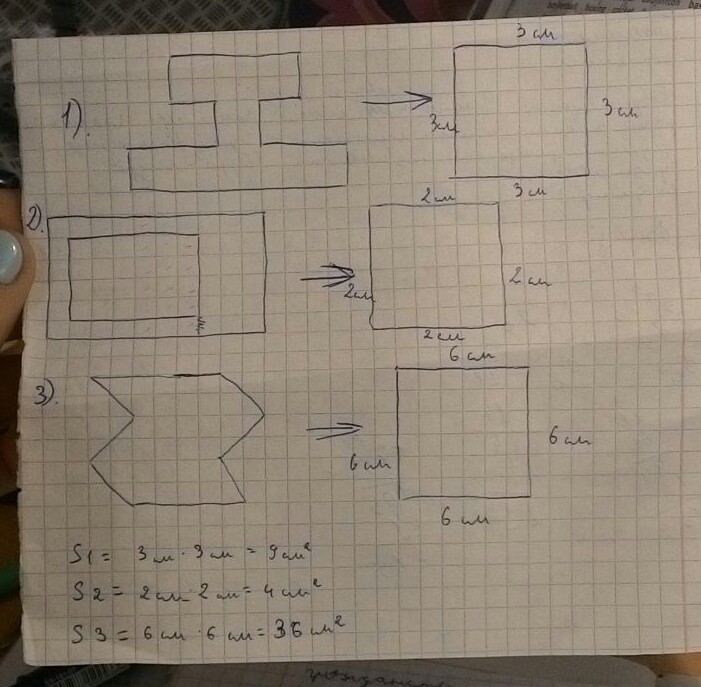 3 см
1).
3см
3 см
3 см
2).
2 см
2см
2 см
2 см
6 см
3).
6 см
6 см
6 см
S1 = 3 см · 3 см = 9 см²
S2 = 2 см · 2 см = 4 см²
S3 = 6 см · 6 см = 36 см²